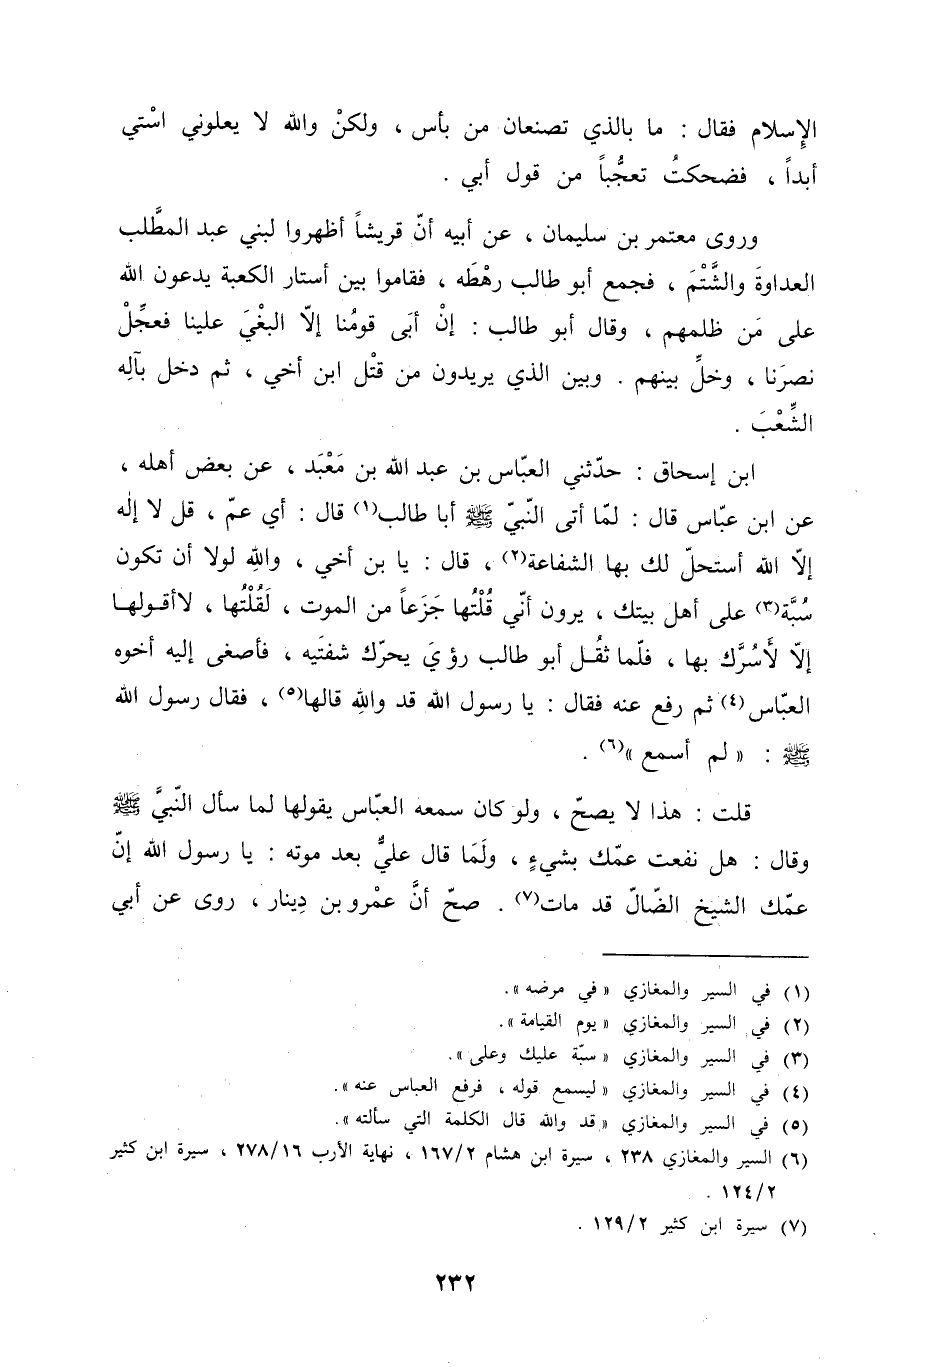 الإسلام فقال : ما بالذي تصنعان من بأس ، ولكنْ والله لا يعلوني اسْتي
أبداً ، فضحكتُ تعجُّباً من قول أبي .
وروى معتمر بن سليمان ، عن أبيه أنّ قريشاً أظهروا لبني عبد المطَّلب
العداوةَ والشَّتْمَ ، فجمع أبو طالب رهْطَه ، فقاموا بين أستار الكعبة يدعون الله
على مَن ظلمهم ، وقال أبو طالب : إنْ أبَى قومُنا إلّا البغْيَ علينا فعجِّلْ
نصرَنا ، وخلِّ بينهم . وبين الذي يريدون من قتْل ابن أخي ، ثم دخل بآلِه
الشِّعْبَ .
ابن إسحاق : حدّثني العبّاس بن عبد الله بن مَعْبَد ، عن بعض أهله ،
عن ابن عبّاس قال : لمّا أتى النّبيّ ﷺ أبا طالب(١) قال : أي عمّ ، قل لا إلٰه
إلّا الله أستحلّ لك بها الشفاعة(٢) ، قال : يا بن أخي ، واللهِ لولا أن تكون
سُبَّة(٣) على أهل بيتك ، يرون أنّي قُلْتُها جَزَعاً من الموت ، لَقُلْتُها ، لاأقولها
إلّا لأَسُرَّك بها ، فلّما ثقُل أبو طالب رؤيَ يحرّك شفتَيه ، فأصغى إليه أخوه
العبّاس(٤) ثم رفع عنه فقال : يا رسول الله قد واللهِ قالها(٥) ، فقال رسول الله
ﷺ : « لم أسمع »(٦) .
قلت : هذا لا يصحّ ، ولو كان سمعه العبّاس يقولها لما سأل النّبيَّ ﷺ
وقال : هل نفعت عمّك بشيءٍ ، ولَمَا قال عليٌّ بعد موته : يا رسول الله إنّ
عمّك الشيخ الضّالّ قد مات(٧) . صحّ أنَّ عمْرو بن دِينار ، روى عن أبي
(١) في السير والمغازي « في مرضه ».
(٢) في السير والمغازي « يوم القيامة ».
(٣) في السير والمغازي « سبّة عليك وعلى ».
(٤) في السير والمغازي « ليسمع قوله ، فرفع العباس عنه ».
(٥) في السير والمغازي « قد والله قال الكلمة التي سألته ».
(٦) السير والمغازي ٢٣٨ ، سيرة ابن هشام ١٦٧/٢ ، نهاية الأرب ٢٧٨/١٦ ، سيرة ابن كثير
١٢٤/٢ .
(٧) سيرة ابن كثير ١٢٩/٢ .
٢٣٢